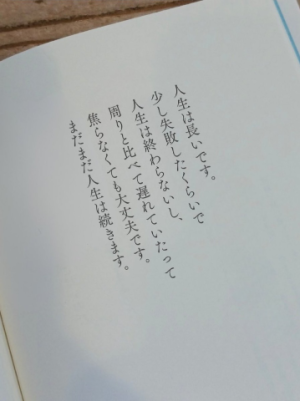 人生は長いです。
少し失敗したくらいで
人生は終わらないし、
周りと比べて遅れていたって
焦らなくても大丈夫です。
まだまだ人生は続きます。